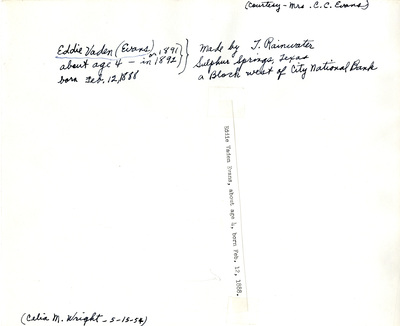 (Courtesy - Mrs. C.C. Evans)
Eddie Vaden (Evans) in 1891
about age 4 - in 1892
born Feb. 12, 1888
Made by T. Rainwater
Sulphur Springs, Texas
a Block west of City National Bank
Eddie Vaden Evans, about age 4, born Feb. 12, 1888.
(Celia M. Wright - 5-15-54)